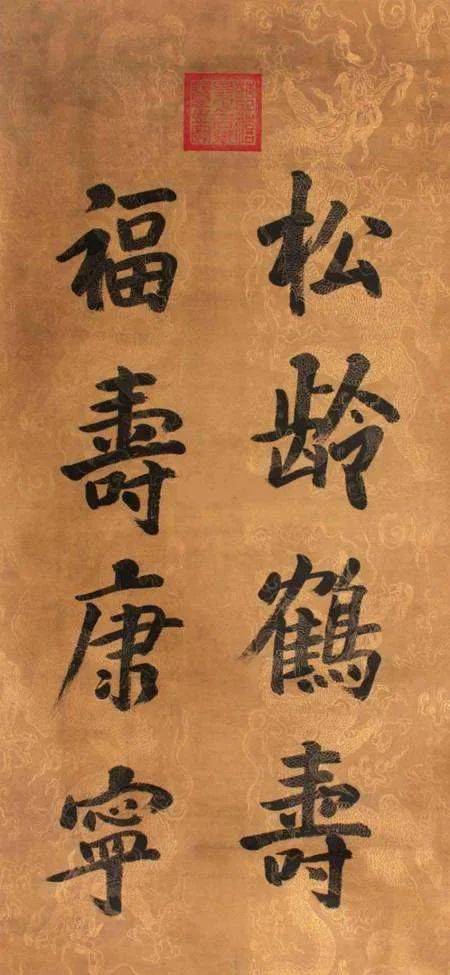 松齡鶴壽
福壽康寧